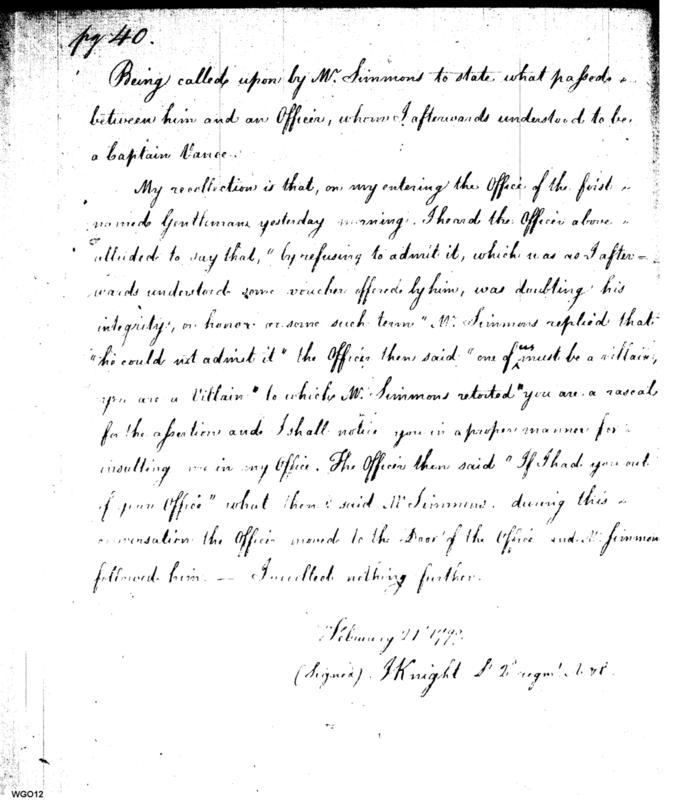 pg 40.
Being called upon by Mr. Simmons to state what passed
between him and an Officer, whom I afterwards understood to be
a Captain Vance.
My recollection is that, on my entering the Office of the first
named Gentleman yesterday morning. I heard the Officer above
alluded to say that, "by refusing to admit it, which was as I after-
wards understood some voucher offered by him, was doubting his
integrity, or honor or some such term" Mr. Simmons replied that
"he could not admit it" the Officer then said "one of us must be a villain,
you are a Villain" to which Mr. Simmons retorted "you are a rascal
for the assertion and I shall notice you in a proper manner for
insulting me in my Office. The Officer then said "If I had you out
of your Office" what then? said Mr Simmons. during this
conversation the Officer moved to the Door of the Office and Mr. Simmons
followed him. — I recollect nothing further.
February 21st
(Signed). J Knight Lt 2d regmt
WGO12